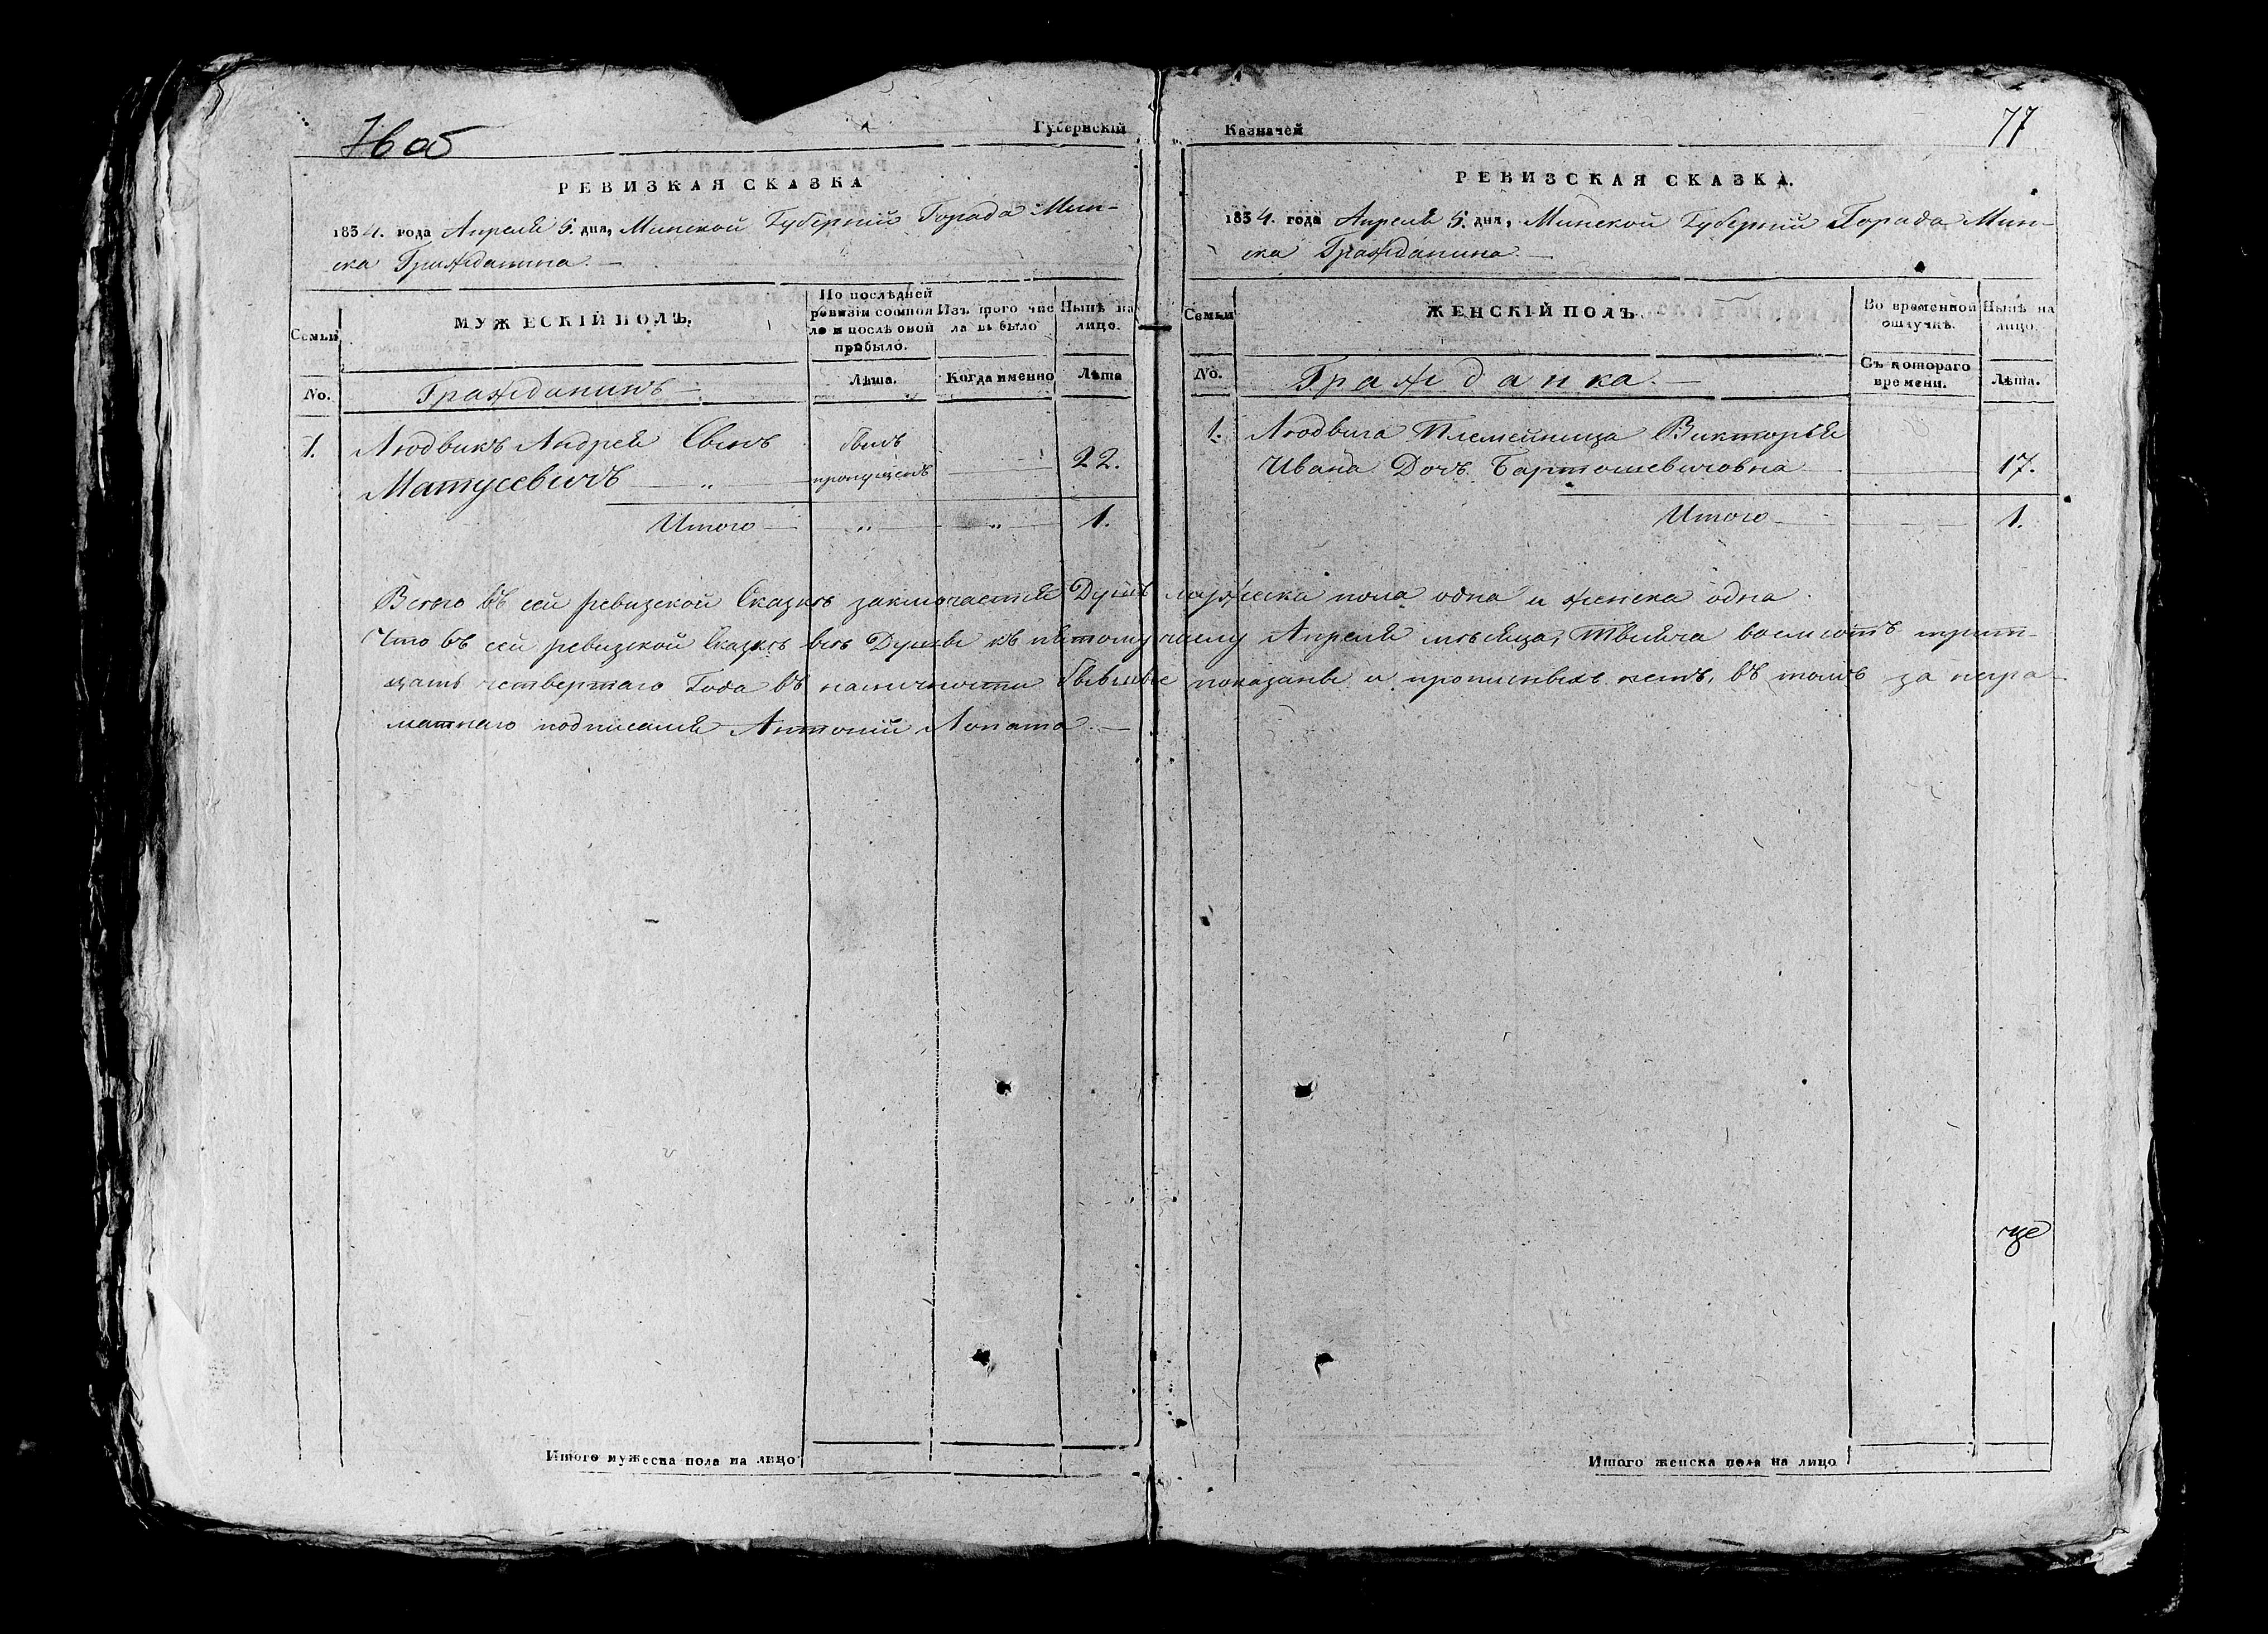 76 об
Губернскій
РЕВИЗКАЯ СКАЗКА
1834. года Апреля 5. дня, Минской Губерніи Города Мин-
ска Гражданина.
Семьи
МУЖЕСКІЙ ПОЛЪ.
По послѣдней
ревизіи состоя
ло и послѣ овой
прибыло.
Изъ того чис
ла вы было
Нынѣ на
лицо.
No.
Гражданинъ
Лѣта.
Когда именно
Лѣта
1. Людвикъ Андрей Сынъ
Матусевичъ
былъ
пропущенъ
22.
Итого 1.
Казначей
77
РЕВИЗСКАЯ СКАЗКА.
1834. года Апреля 5. дня, Минской Губерніи Города Мин-
ска Гражданина.
Семьи
ЖЕНСКІЙ ПОЛЪ.
Во временной
отлучкѣ.
Нынѣ на
лицо.
No.
Гражданка.
Съ котораго
времени.
Лѣта.
1. Людвига Племенница Викторья
Ивана Дочь Бартошевичовна 17.
Итого 1.
Всего въ сей ревизской Сказкѣ заключается Душъ мужеска пола одна и женска одна.
Что въ сей ревизской Сказкѣ всѣ Душы къ пятому числу Апреля мѣсяца, тысяча восемсотъ трит-
цать четвертаго Года въ наличности бывшые показаны и прописныхъ нетъ, въ томъ за негра-
матнаго подписался Антоній Лопата.
Итого мужеска пола на лицо
Итого женска пола на лицо